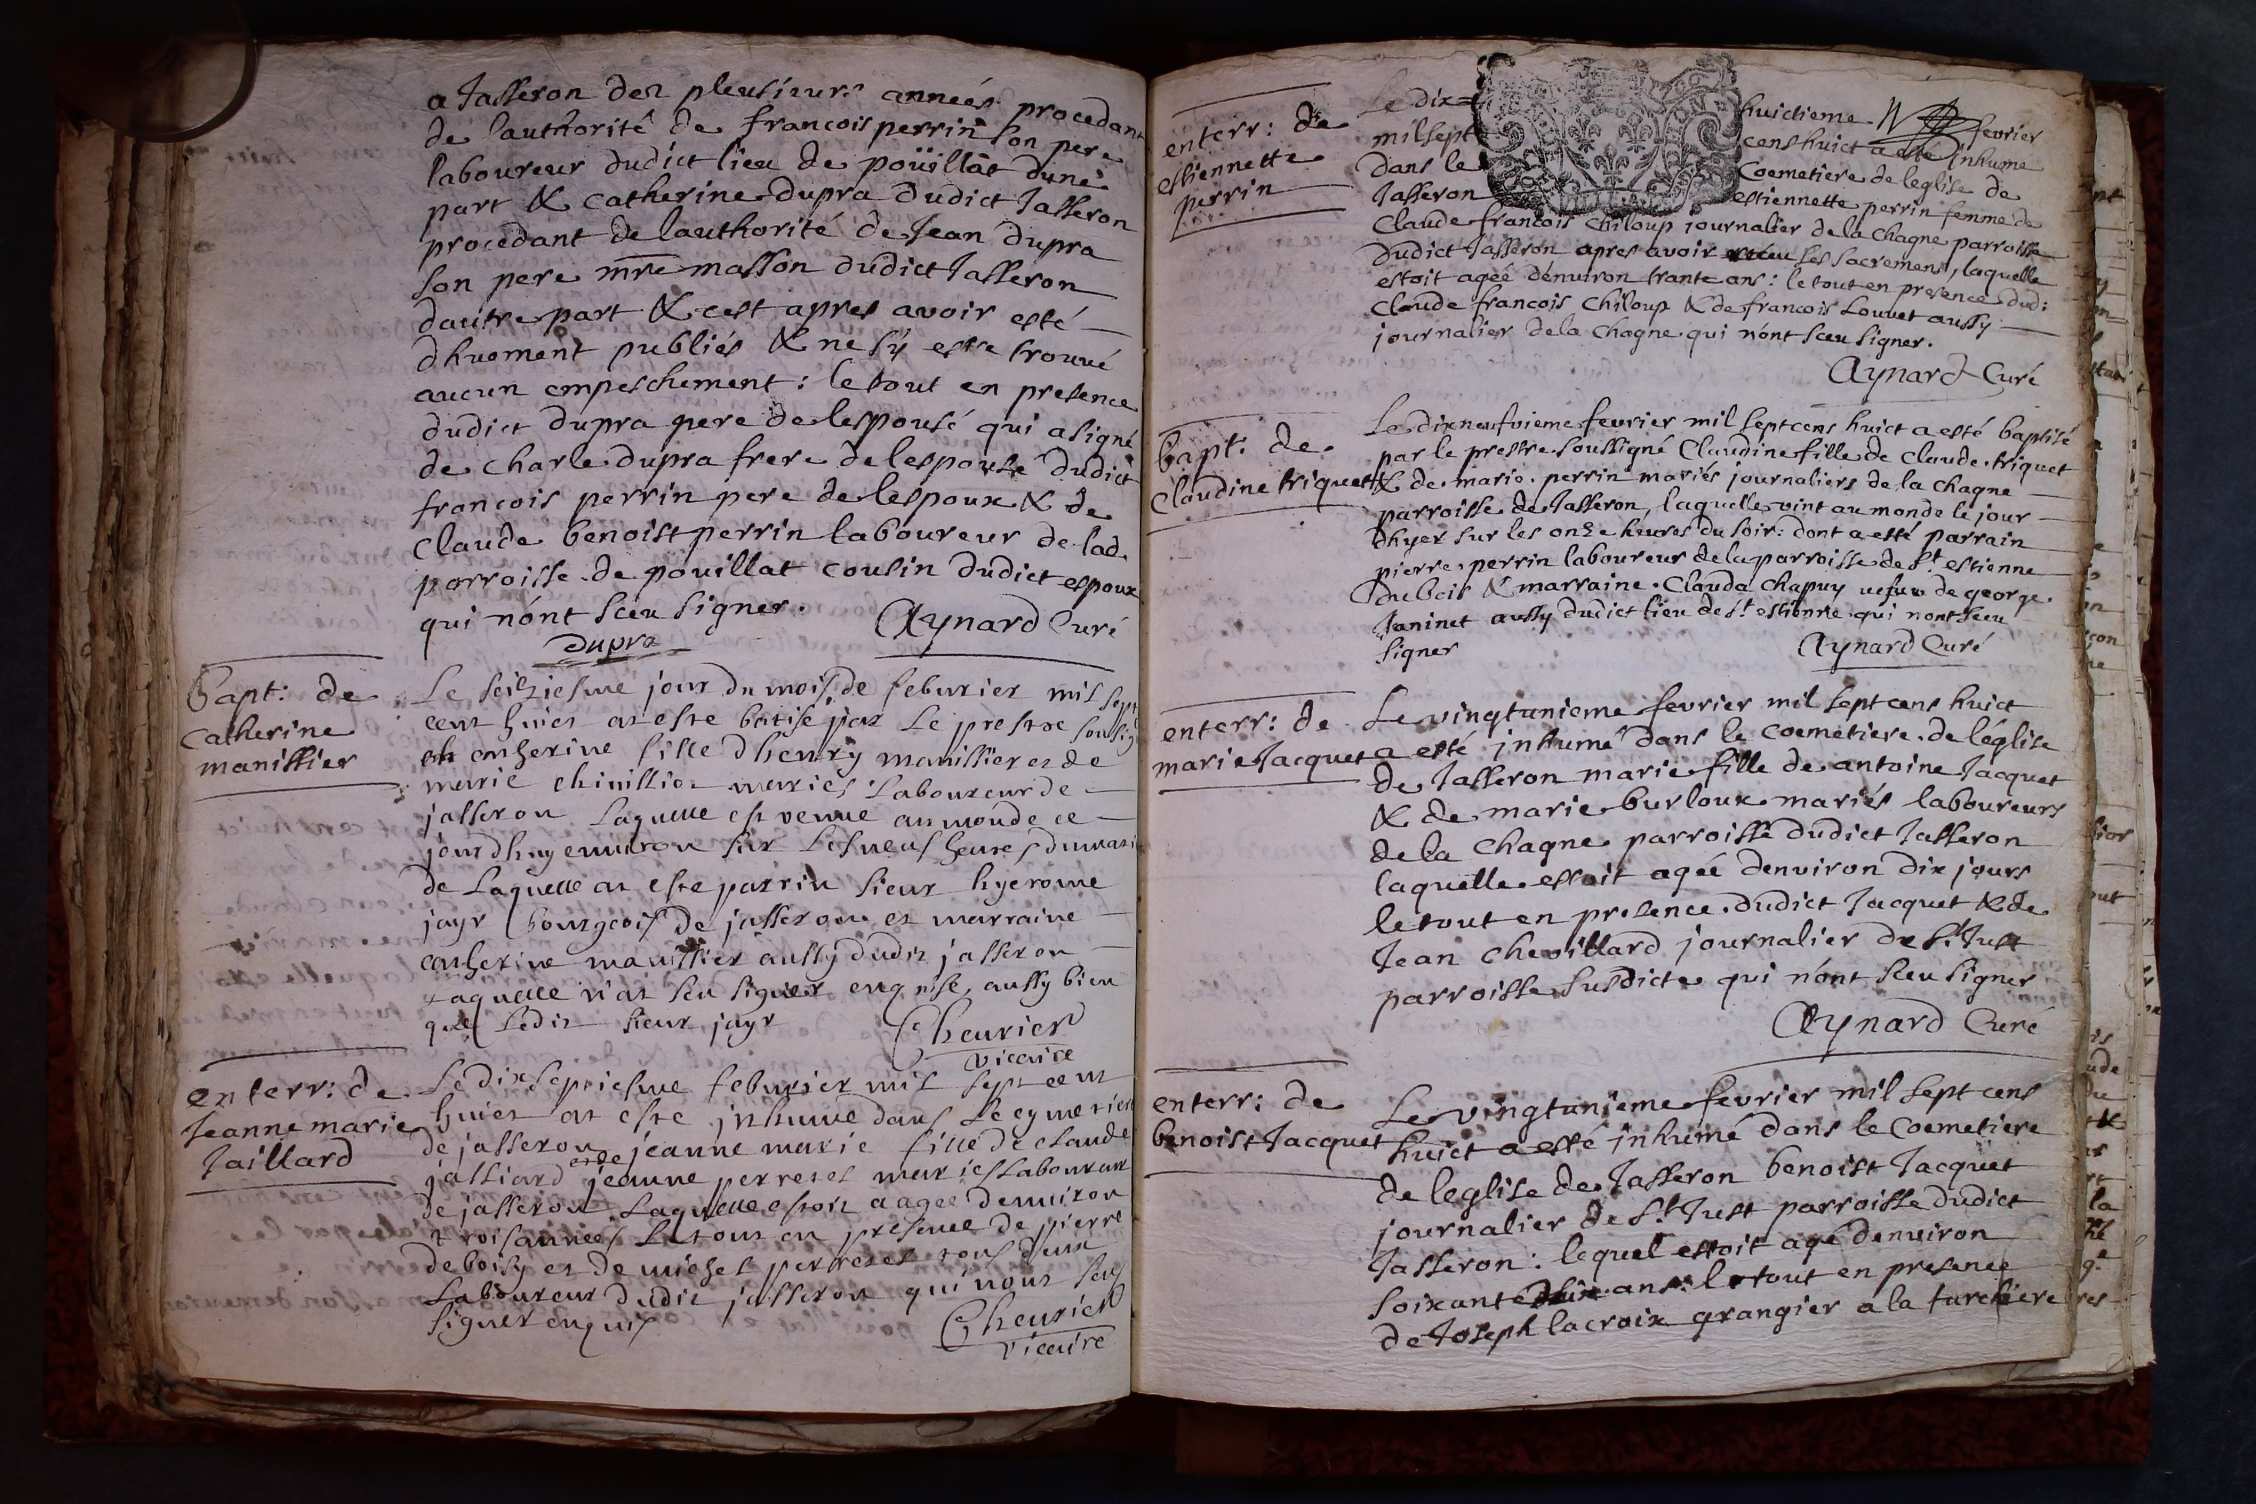 a Jasseron dez pleusieurs années procedant
de lauthorité de francois perrin son pere
laboureur dudict lieu de poüillat dune
part & catherine dupra dudict Jasseron
procedant de lauthorité de Jean dupra
son pere mre masson dudict Jasseron
dautre part & cest apres avoir esté
dhuement publiés & ne sy estre trouué
aucun empeschement : le tout en presence
dudict dupra pere de lespousé qui a signé
de charle dupra frere de lespousé dudict
francois perrin pere de lespoux & de
claude benoist perrin laboureur de lad.
parroisse de pouillat cousin dudict espoux
qui nónt sceu signer. Aynard Curé
dupra
bapt: de
catherine
manissier
Le seiziesme jour du mois de feburier mil sept
cent huict at este batisé par le prestre soussig
catherine fille dhenry manissier et de
marie chinillion mariés laboureur de
jasseron laquelle est venue au monde ce
jourdhuy enuiron sur les neuf heures du matin
de laquelle at este parrin sieur hyerome
jayr bourgeois de jasseron et marraine
catherine manissier aussy dudit jasseron
laquelle n'at seu signer enquise, aussy bien
que ledit sieur jayr Cheurier
vicaire
enterr: de
Jeanne marie
Jaillard
Le dix septiesme feburier mil sept cent
huict at este inhumé dans le cymetiere
de jasseron jeanne marie fille de claude
jalliard et de jeanne perret mariés laboureur
de jasseron laquelle estoit aagee denuiron
trois années le tout en presence de pierre
deboisy et de michel perret tous deux
laboureur dudit jasseron qui nont seu
signer enquis Cheurier
vicaire
enterr: de
estiennette
perrin
Le dix huictieme fevrier
mil sept cens huict a esté inhumé
dans le coemetiere de leglise de
Jasseron estiennette perrin femme de
claude francois chiloup journalier de la chagne parroisse
dudict Jasseron apres avoir receu ses sacremens, laquelle
estoit ageé dénuiron trante ans : le tout en presence dud:
claude francois chiloup & de francois Louuet aussy
journalier de la chagne qui nónt sceu signer.
Aynard Curé
bapt: de
claudine triquet
Le dixneufvieme fevrier mil sept cens huict a esté baptisé
par le prestre soussigné Claudine fille de claude triquet
& de marie perrin mariés journaliers de la chagne
parroisse de Jasseron, laquelle vint au monde le jour
dhyer sur les onze heures du soir : dont a esté parrain
pierre perrin laboureur de la parroisse de St estienne
dubois & marraine Clauda chapuy uefue de george
Janinet aussy dudict lieu de St estienne qui nont sceu
signer Aynard Curé
enterr: de
marie Jacquet
Le vingtunieme fevrier mil sept cens huict
a esté inhumé dans le coemetiere de léglise
de Jasseron marie fille de antoine Jacquet
& de marie burloux mariés laboureurs
de la chagne parroisse dudict Jasseron
laquelle estoit ageé denviron dix jours
le tout en presence dudict Jacquet & de
Jean chevillard journalier de St Just
parroisse susdicte qui nónt sceu signer
Aynard Curé
enterr: de
benoist Jacquet
Le vingtunieme fevrier mil sept cens
huict a esté inhumé dans le coemetiere
de leglise de Jasseron benoist Jacquet
journalier de St Just parroisse dudict
Jasseron : lequel estoit agé denuiron
soixante ans : le tout en presence
de Joseph lacroix grangier a la turchiere